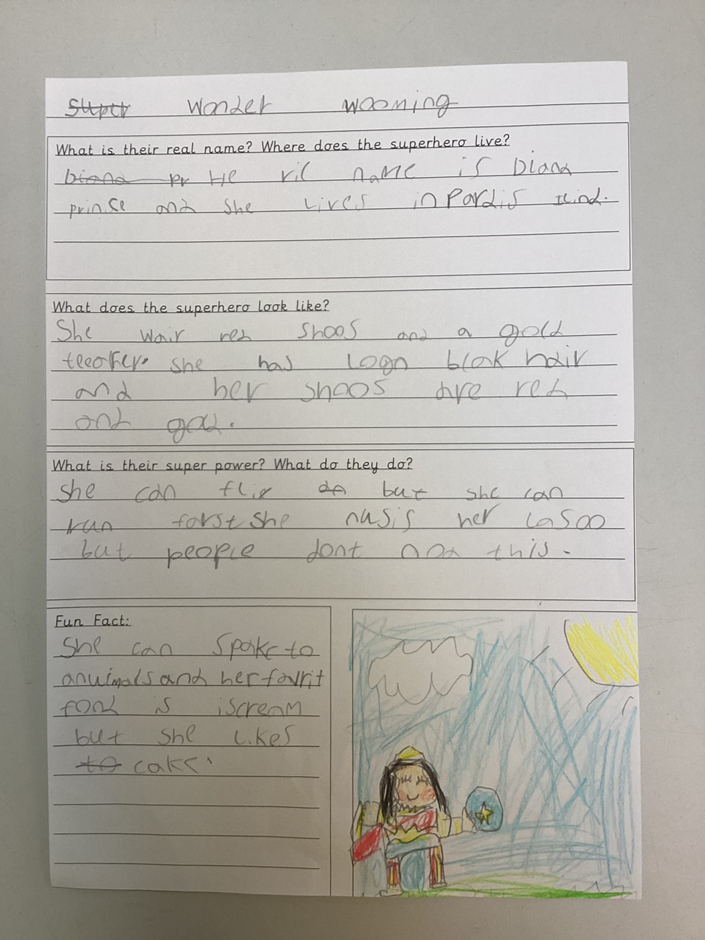 Super Wonder wooming
What is their real name? Where does the superhero live?
Diana pr He ril name is Diana
prince and she lives in Pardis Ilind.
What does the superhero look like?
She wair red shoos and a gold
she has logn blak hair
and her shoos are red
and gold.
What is their super power? What do they do?
she can flir an but she can
run farst she nusis her lasoo
but people dont nod this.
Fun Fact:
She can spake to
anuimals and her favrit
food is iscream
but she likes
to cake.